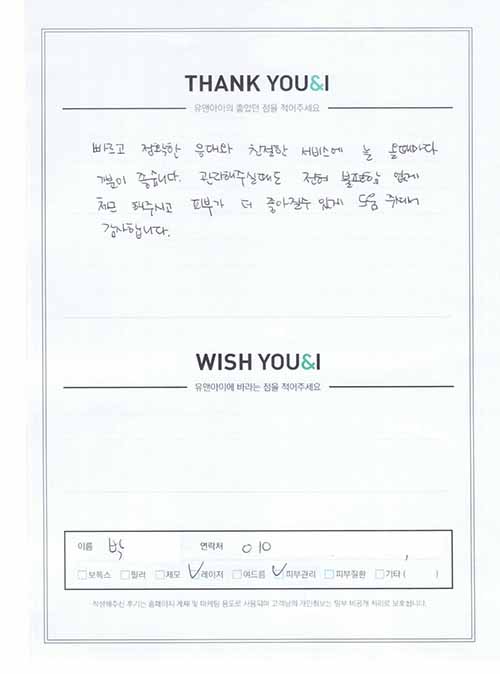 THANK YOU&I
유앤아이의 좋았던 점을 적어주세요
빠르고 정확한 응대와 친절한 서비스에 늘 올때마다
기분이 좋습니다. 관리해주실때도 전혀 불편함 없게
처치 해주시고 피부가 더 좋아질수 있게 도움 주셔서
감사합니다.
WISH YOU&I
유앤아이에 바라는 점을 적어주세요
이름 박 연락처 010
보톡스 필러 제모 레이저 여드름 피부관리 피부질환 기타 ( )
작성해주신 후기는 홈페이지 게재 및 마케팅 용도로 사용되며 고객님의 개인정보는 일부 비공개 처리로 보호됩니다.